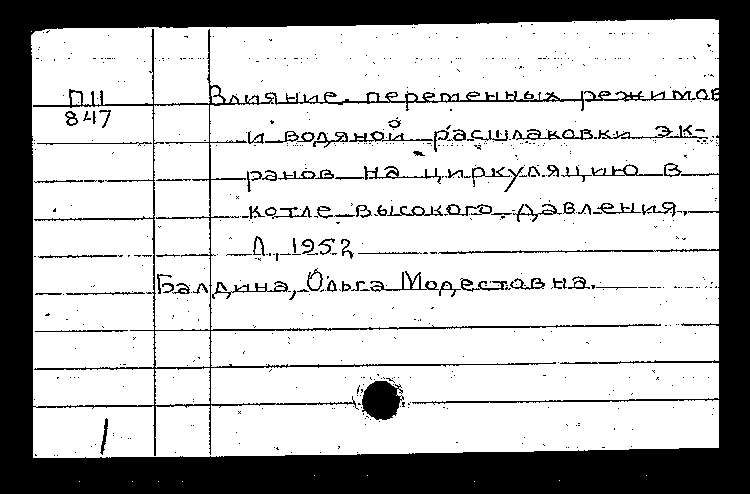 П11
847
Влияние переменных режимов
и водяной расшлаковки эк-
ранов на циркуляцию в
котле высокого давления.
Л., 1952
Балдина, Ольга Модестовна.